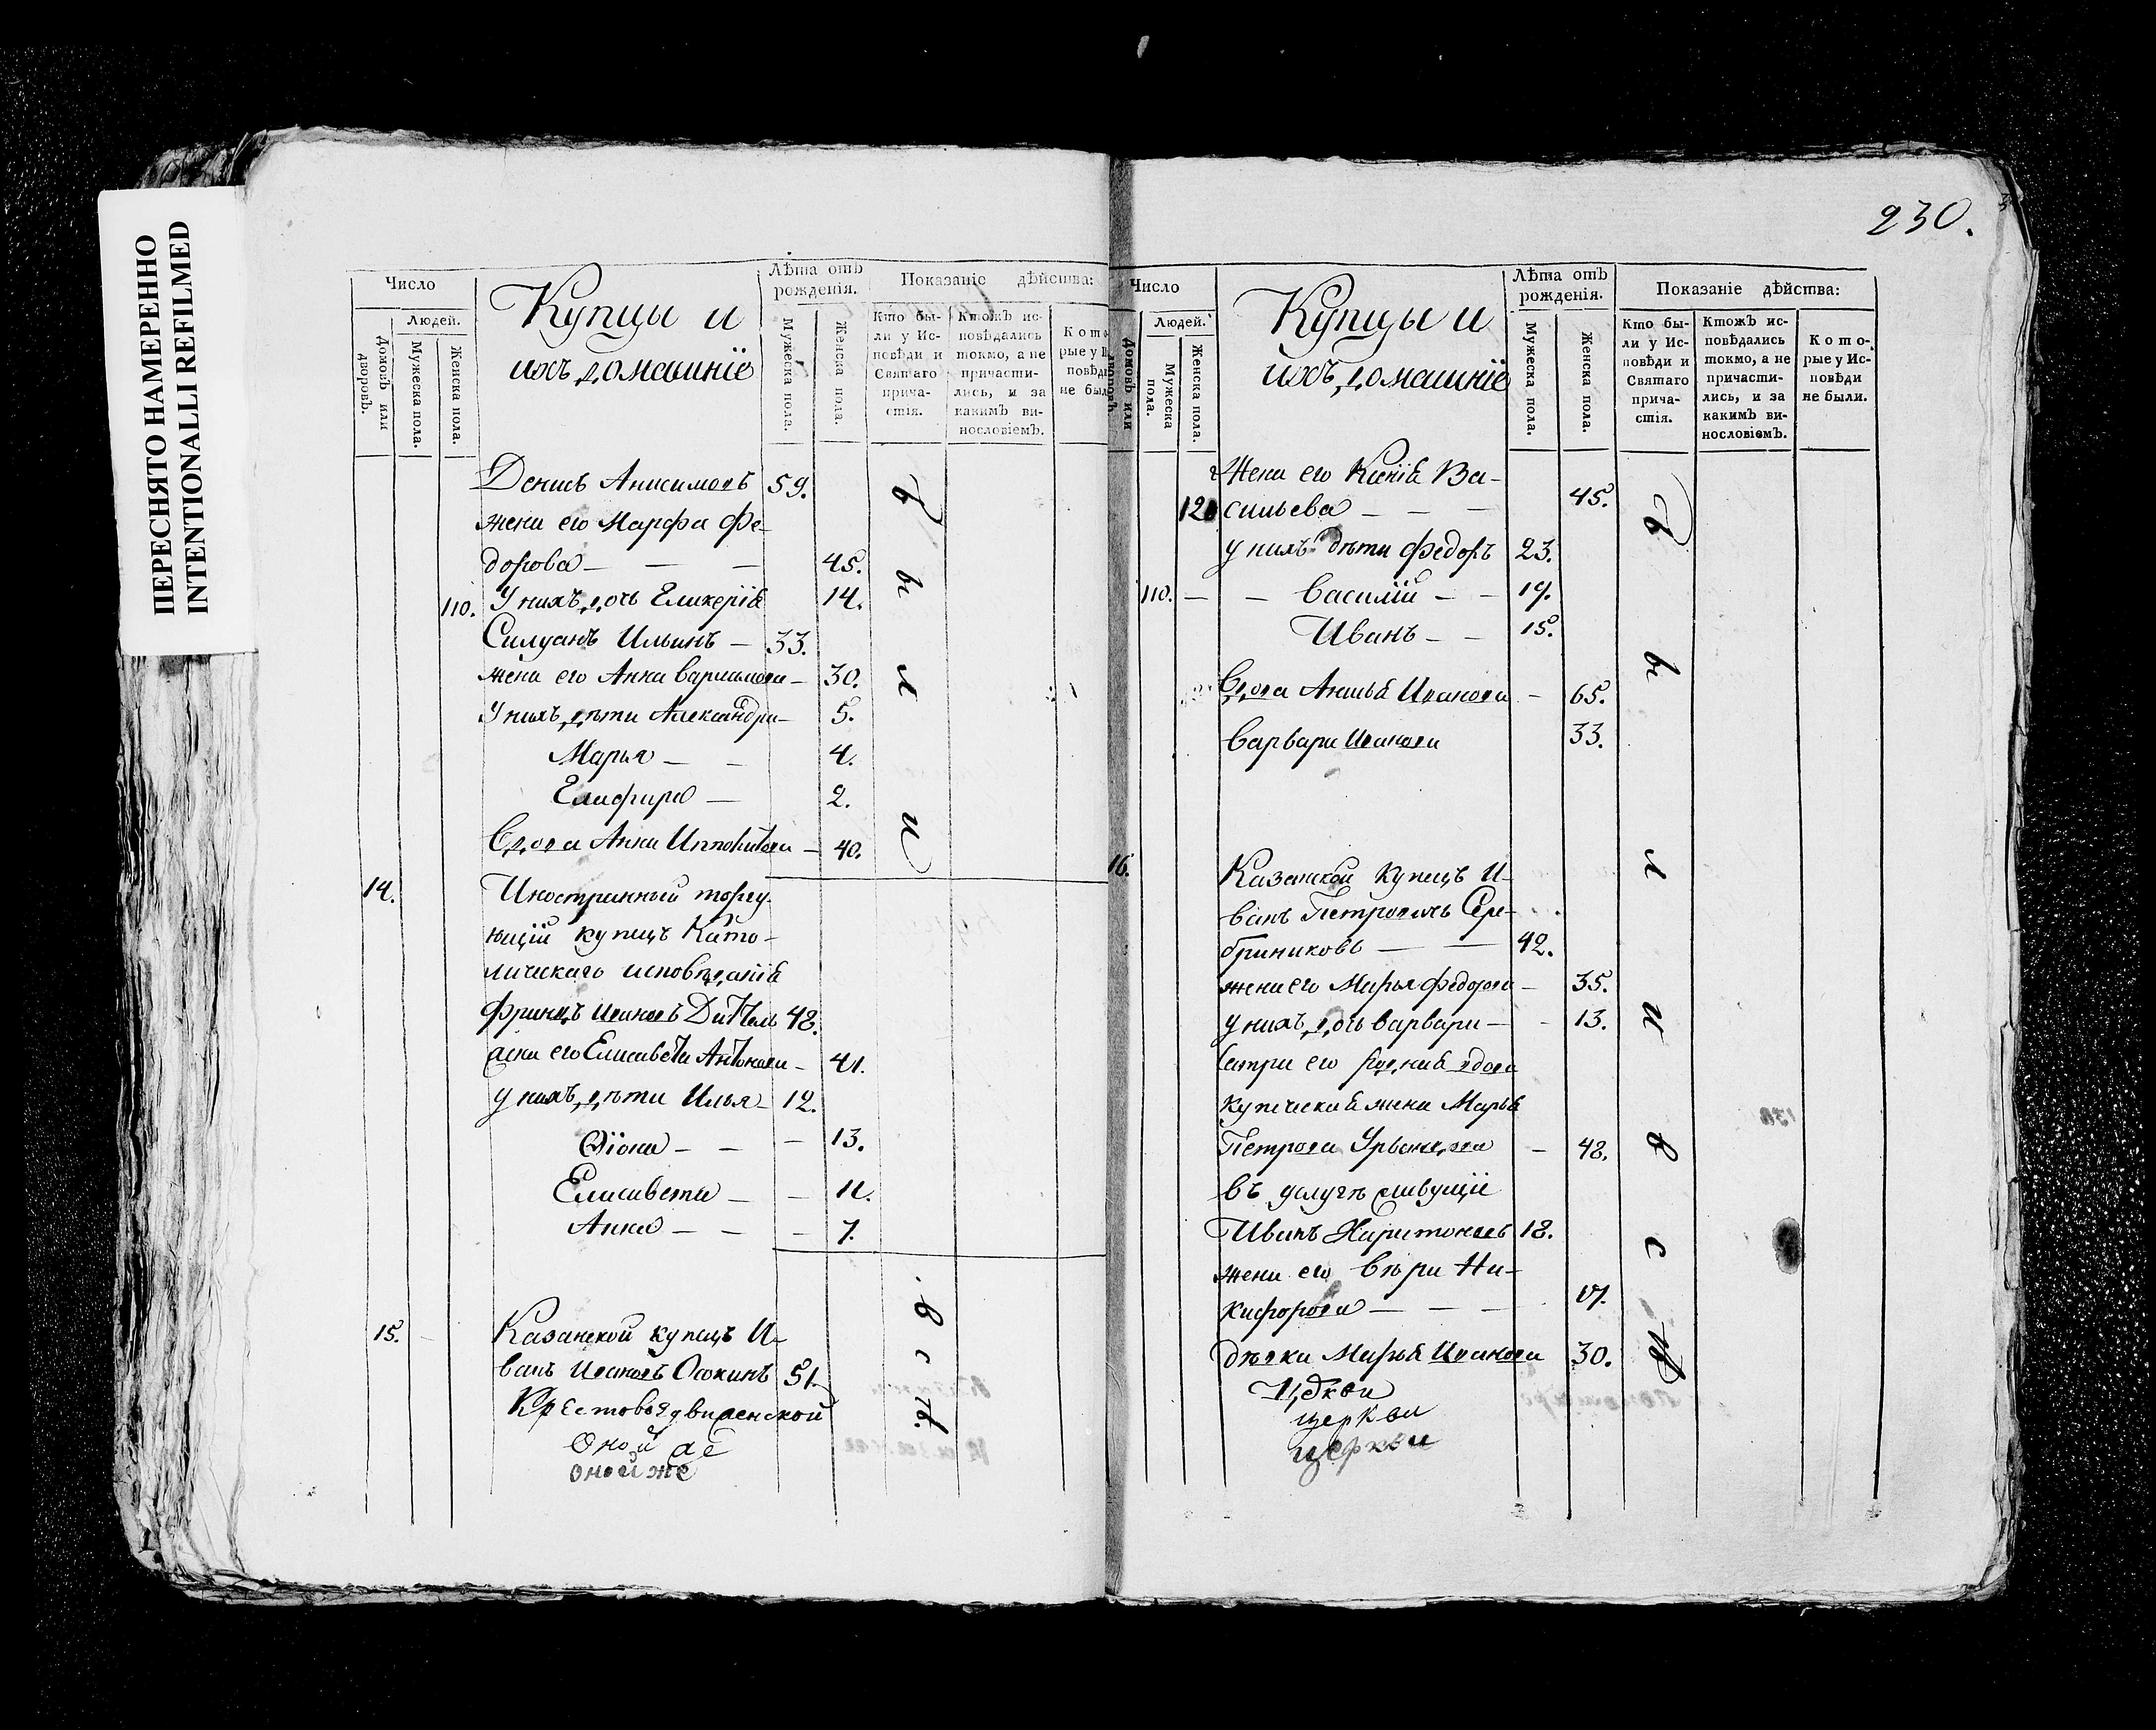 ПЕРЕСНЯТО НАМЕРЕННО
INTENTIONALLI REFILMED
Число
Людей.
Домовъ или дворовъ.
Мужеска пола.
Женска пола.
Купцы и
ихъ домашніе
Лѣта отъ рожденія.
Мужеска пола.
Женска пола.
Показаніе дѣйства:
Кто бы-
ли у Ис-
повѣди и
Святаго
прича-
стія.
Ктожъ ис-
повѣдались
токмо, а не
причасти-
лись, и за
какимъ ви-
нословіемъ.
Кото
рые у И
повѣд
не был
Денисъ Анисимовъ 59.
жена его Марфа Фе-
дорова — — — 45.
110. У нихъ дочь Гликерія 14.
Силуанъ Ильинъ — 33.
жена его Анна Варламова — 30.
У нихъ дѣти Александра — 5.
Марья — — 4.
Глафира — 2.
Вдова Анна Ипполитова — 40.
были
14. Иностранный торгу-
ющій купецъ Като-
лическаго исповѣданія
Францъ Ивановъ 48.
жена его Елисавета Антонова — 41.
у нихъ дѣти Илья — 12.
— — — 13.
Елисавета — — 11.
Анна — — — 7.
15. Казанской купецъ И-
ванъ Ивановъ Осокинъ 51.
всѣ
Крестовоздвиженской
Оной же
оной же
230.
Число
Людей.
Домовъ или дворовъ.
Мужеска пола.
Женска пола.
Купцы и
ихъ домашніе
Лѣта отъ рожденія.
Мужеска пола.
Женска пола.
Показаніе дѣйства:
Кто бы-
ли у Ис-
повѣди и
Святаго
прича-
стія.
Ктожъ ис-
повѣдались
токмо, а не
причасти-
лись, и за
какимъ ви-
нословіемъ.
Кото-
рые у Ис-
повѣди
не были.
Жена его Ксенія Ва-
120 сильева — — — 45.
у нихъ дѣти Федоръ 23.
110. — — Василій — — 19.
Иванъ — — 15.
Вдова Анисья Иванова — 65.
Варвара Иванова 33.
16. Казанской купецъ И-
ванъ Петровичь Сере-
бряниковъ — — 42.
жена его Марья Федорова — 35.
у нихъ дочь Варвара — — 13.
Сестра его родная вдова
купеческая жена Марья
Петрова — 48.
въ услугѣ живущіе
Иванъ Харитоновъ 18.
жена его Вѣра Ни-
кифорова — — — 17.
дѣвка Марья Иванова 30.
были всѣ
Церкви
церкви
церкви